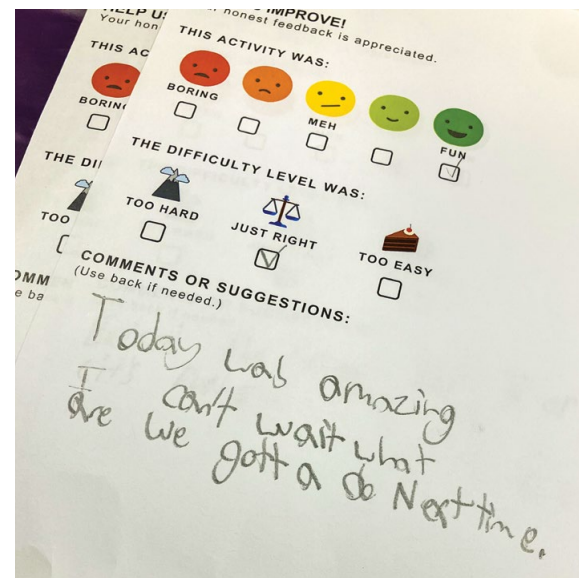 HELP US IMPROVE!
Your honest feedback is appreciated.
THIS ACTIVITY WAS:
BORING
MEH
FUN
THE DIFFICULTY LEVEL WAS:
TOO HARD
JUST RIGHT
TOO EASY
COMMENTS OR SUGGESTIONS:
(Use back if needed.)
Today was amazing
I can't wait what
are we gotta do Next time.
HELP US
Your hon
THIS AC
BORING
THE DI
TOO
OMM
e ba